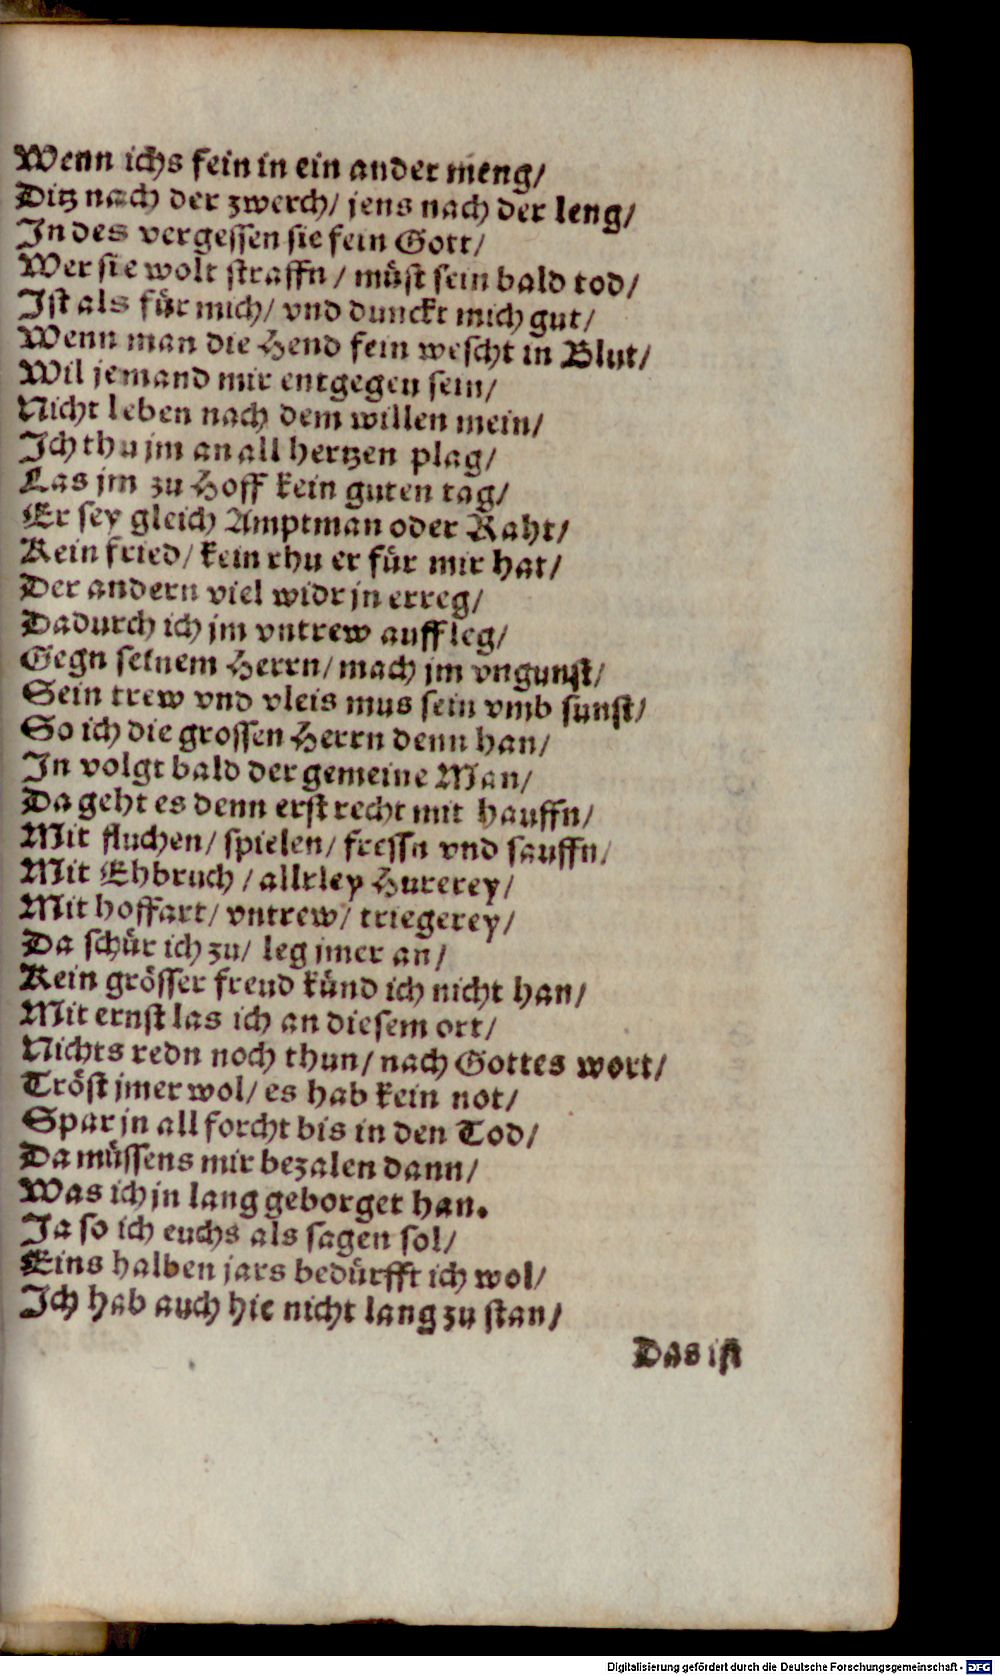 Wenn ichs fein in ein ander meng/
Ditz nach der zwerch/ jens nach der leng/
In des vergessen sie fein Gott/
Wer sie wolt straffn/ müst sein bald tod/
Ist als für mich/ vnd dunckt mich gut/
Wenn man die Hend fein wescht in Blut/
Wil jemand mir entgegen sein/
Nicht leben nach dem willen mein/
Ich thu jm an all hertzen plag/
Las jm zu Hoff kein guten tag/
Er sey gleich Amptman oder Raht/
Kein fried/ kein rhu er für mir hat/
Der andern viel widr jn erreg/
Dadurch ich jm vntrew auffleg/
Gegn seinem Herrn/ mach jm vngunst/
Sein trew vnd vleis mus sein vmb sunst/
So ich die grossen Herrn denn han/
In volgt bald der gemeine Man/
Da geht es denn erst recht mit hauffn/
Mit fluchen/ spielen/ fressn vnd sauffn/
Mit Ehbruch/ allrley Hurerey/
Mit hoffart/ vntrew/ triegerey/
Da schür ich zu/ leg jmer an/
Kein grösser freud künd ich nicht han/
Mit ernst las ich an diesem ort/
Nichts redn noch thun/ nach Gottes wort/
Tröst jmer wol/ es hab kein not/
Spar jn all forcht bis in den Tod/
Da müssens mir bezalen dann/
Was ich jn lang geborget han.
Ja so ich euchs als sagen sol/
Eins halben jars bedürfft ich wol/
Ich hab auch hie nicht lang zu stan/
Das ist
Digitalisierung gefördert durch die Deutsche Forschungsgemeinschaft - DFG